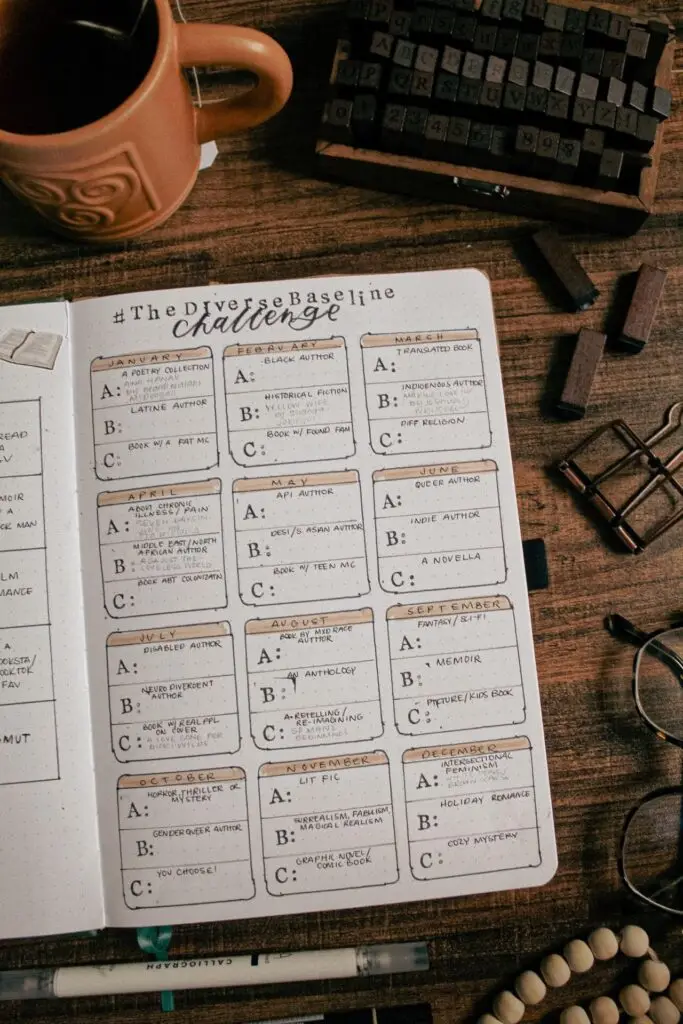 #TheDiverseBaseline
challenge
JANUARY
A: A POETRY COLLECTION
B: LATINE AUTHOR
C: BOOK W/ A FAT MC
FEBRUARY
A: BLACK AUTHOR
B: HISTORICAL FICTION
YELLOW WIFE
C: BOOK W/ FOUND FAM
MARCH
A: TRANSLATED BOOK
B: INDIGENOUS AUTHOR
C: DIFF RELIGION
APRIL
A: ABOUT CHRONIC
ILLNESS/PAIN
B: MIDDLE EAST/NORTH
AFRICAN AUTHOR
AGAINST THE
LOVELESS WORLD
C: BOOK ABT COLONIZATN
MAY
A: API AUTHOR
B: DESI/S. ASIAN AUTHOR
C: BOOK W/ TEEN MC
JUNE
A: QUEER AUTHOR
B: INDIE AUTHOR
C: A NOVELLA
JULY
A: DISABLED AUTHOR
B: NEURODIVERGENT
AUTHOR
C: BOOK W/ REAL PPL
ON COVER
AUGUST
A: BOOK BY MXD RACE
AUTHOR
B: AN ANTHOLOGY
C: A RETELLING/
RE-IMAGINING
SO MANY
BEGINNINGS
SEPTEMBER
A: FANTASY/SCI-FI
B: MEMOIR
C: PICTURE/KIDS BOOK
OCTOBER
A: HORROR, THRILLER OR
MYSTERY
B: GENDERQUEER AUTHOR
C: YOU CHOOSE!
NOVEMBER
A: LIT FIC
B: SURREALISM, FABULISM,
MAGICAL REALISM
C: GRAPHIC NOVEL/
COMIC BOOK
DECEMBER
A: INTERSECTIONAL
FEMINISM
B: HOLIDAY ROMANCE
C: COZY MYSTERY
CALLIGRAPH